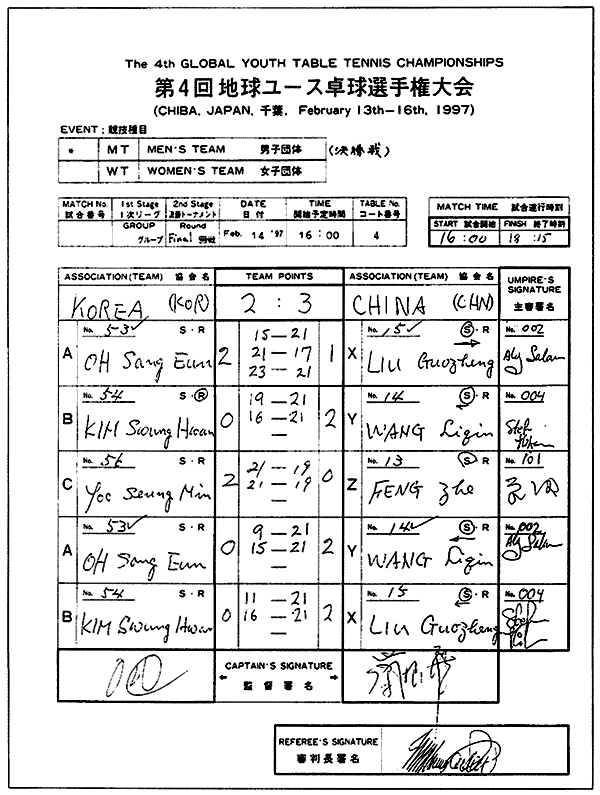 The 4th GLOBAL YOUTH TABLE TENNIS CHAMPIONSHIPS
第4回 地球ユース卓球選手権大会
(CHIBA, JAPAN, 千葉, February 13th-16th, 1997)
EVENT ; 競技種目
* MT MEN'S TEAM 男子団体 (決勝戦)
WT WOMEN'S TEAM 女子団体
MATCH No. 試合番号 1st Stage 1次リーグ 2nd Stage 決勝トーナメント DATE 日付 TIME 開始予定時間 TABLE No. コート番号
GROUP グループ Round Final Feb. 14 '97 16:00 4
MATCH TIME 試合進行時刻
START 試合開始 FINISH 終了時刻
16:00 18:15
ASSOCIATION (TEAM) 協会名 TEAM POINTS ASSOCIATION (TEAM) 協会名 UMPIRE'S SIGNATURE 主審署名
KOREA (KOR) 2 : 3 CHINA (CHN)
No. 53 S・R 15-21 No. 15 S・R No. 002
A OH Sang Eun 2 21-17 1 X LIU Guozheng Aly Salam
23-21
No. 54 S・R 19-21 No. 14 S・R No. 004
B KIM Swung Hwan 0 16-21 2 Y WANG Liqin
—
No. 56 S・R 21-19 No. 13 S・R No. 101
C Yoo Seung Min 2 21-19 0 Z FENG Zhe
—
No. 53 S・R 9-21 No. 14 S・R No. 002
A OH Sang Eun 0 15-21 2 Y WANG Liqin Aly Salam
—
No. 54 S・R 11-21 No. 15 S・R No. 004
B KIM Swung Hwan 0 16-21 2 X LIU Guozheng
—
CAPTAIN'S SIGNATURE
監督署名
REFEREE'S SIGNATURE
審判長署名